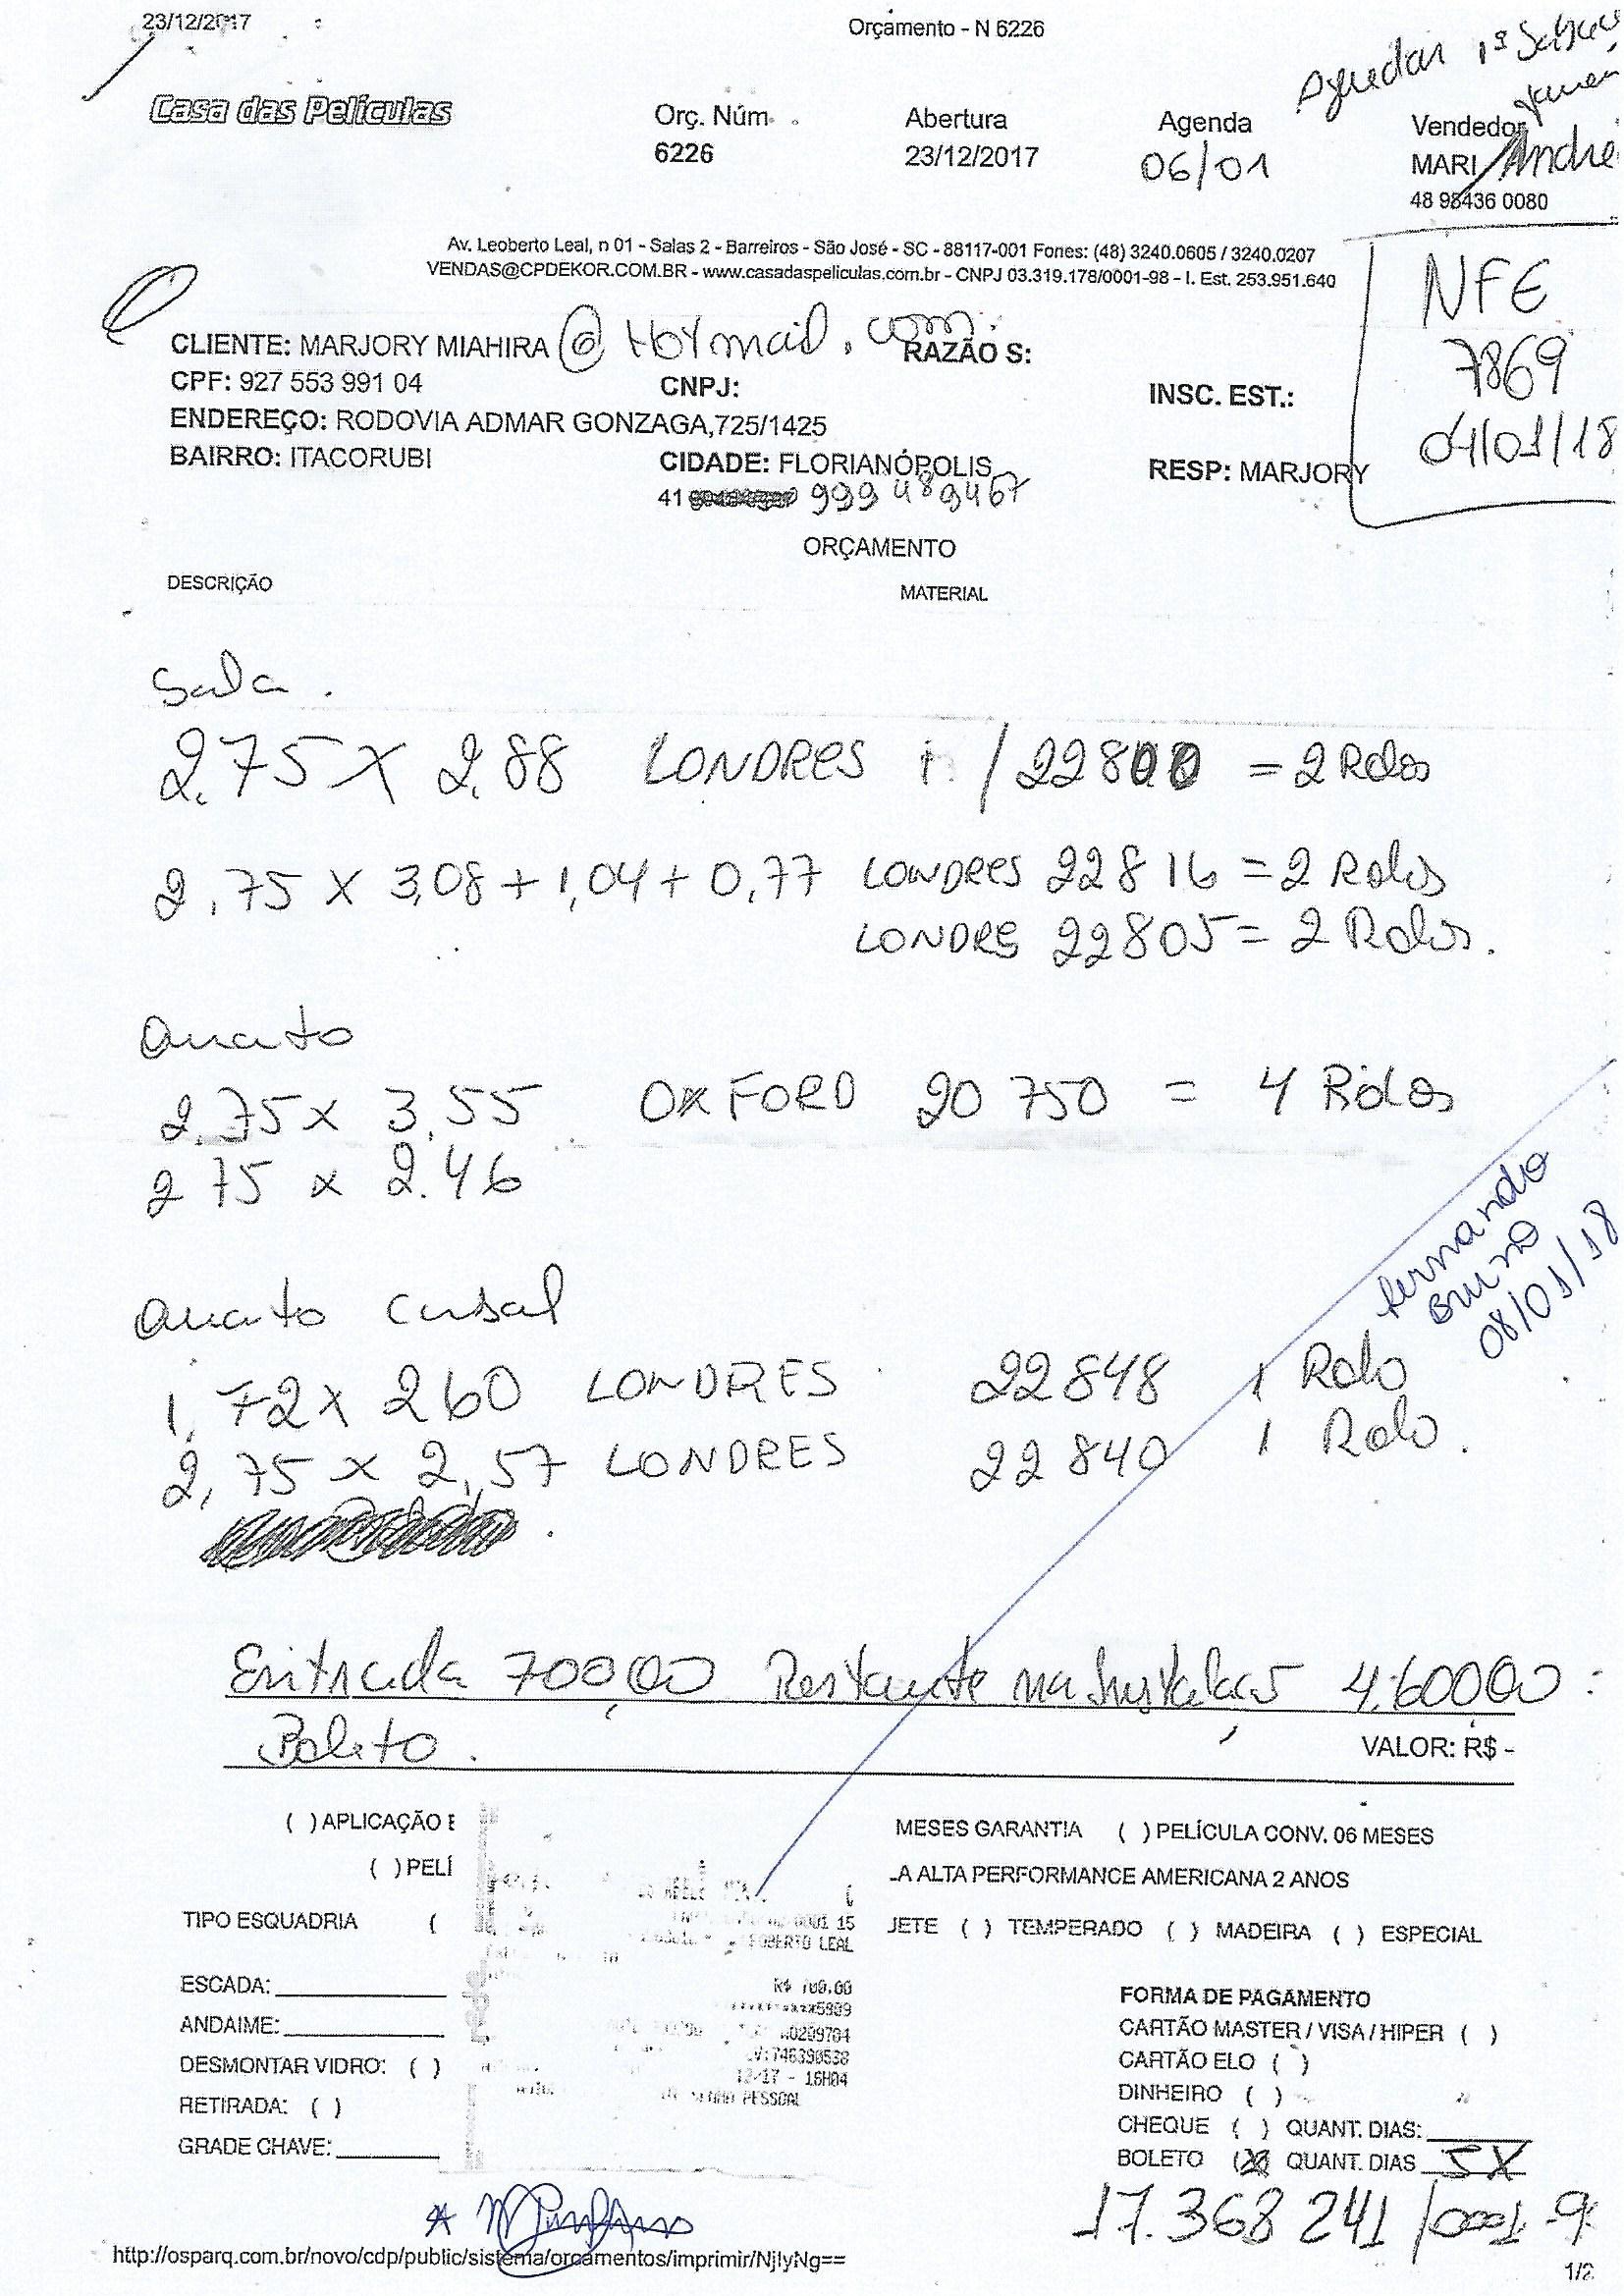 23/12/2017 Orçamento - N 6226
Agendar 1ª
Casa das Películas Orç. Núm. Abertura Agenda Vendedor
6226 23/12/2017 06/01 MARI André
48 98436 0080
Av. Leoberto Leal, n 01 - Salas 2 - Barreiros - São José - SC - 88117-001 Fones: (48) 3240.0605 / 3240.0207
VENDAS@CPDEKOR.COM.BR - www.casadaspeliculas.com.br - CNPJ 03.319.178/0001-98 - I. Est. 253.951.640
NFE
7869
04/01/18
CLIENTE: MARJORY MIAHIRA @Hotmail.com RAZÃO S:
CPF: 927 553 991 04 CNPJ: INSC. EST.:
ENDEREÇO: RODOVIA ADMAR GONZAGA,725/1425
BAIRRO: ITACORUBI CIDADE: FLORIANÓPOLIS RESP: MARJORY
41 999489467
ORÇAMENTO
DESCRIÇÃO MATERIAL
Sala.
2.75 x 2.88 LONDRES / 22800 = 2 Rolos
2.75 x 3,08 + 1,04 + 0,77 LONDRES 22816 = 2 Rolos
LONDRS 22805 = 2 Rolos.
Quarto
2.75 x 3.55 OXFORD 20 750 = 4 Rolos
2 75 x 2.46
fernando
Bruno
08/01/18
Quarto casal
1.72 x 260 LONDRES 22848 1 Rolo
2,75 x 2,57 LONDRES 22 840 1 Rolo.
Entrada 700,00 Restante na Instalação 4.600,00
Boleto.
VALOR: R$ -
( ) APLICAÇÃO E MESES GARANTIA ( ) PELÍCULA CONV. 06 MESES
( ) PELÍ LA ALTA PERFORMANCE AMERICANA 2 ANOS
TIPO ESQUADRIA ( JETE ( ) TEMPERADO ( ) MADEIRA ( ) ESPECIAL
0001 15
OBERTO LEAL
R$ 700.00
5909
746390538
12/17 - 16H04
PESSOAL
ESCADA:
ANDAIME:
DESMONTAR VIDRO: ( )
RETIRADA: ( )
GRADE CHAVE:
FORMA DE PAGAMENTO
CARTÃO MASTER / VISA / HIPER ( )
CARTÃO ELO ( )
DINHEIRO ( )
CHEQUE ( ) QUANT. DIAS:
BOLETO (X) QUANT. DIAS 5X
17.368 241 /0001-9
http://osparq.com.br/novo/cdp/public/sistema/orcamentos/imprimir/NjIyNg==
1/2